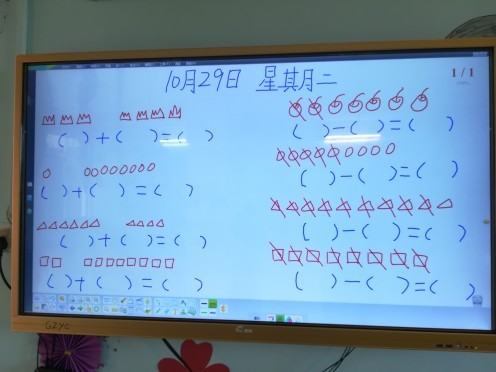 10月29日 星期二
1/1
( ) + ( ) = ( )
( ) - ( ) = ( )
( ) + ( ) = ( )
( ) - ( ) = ( )
( ) + ( ) = ( )
( ) - ( ) = ( )
( ) + ( ) = ( )
( ) - ( ) = ( )
GZYC